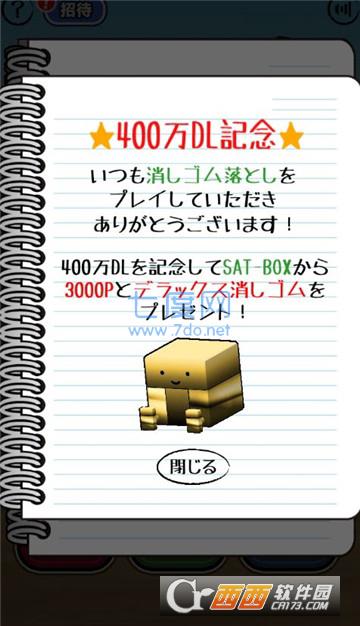 ?
!
招待
★400万DL記念★
いつも消しゴム落としを
プレイしていただき
ありがとうございます!
400万DLを記念してSAT-BOXから
3000Pとデラックス消しゴムを
七度网
www.7do.net
プレゼント!
閉じる
Cr 西西软件园
CR173.com